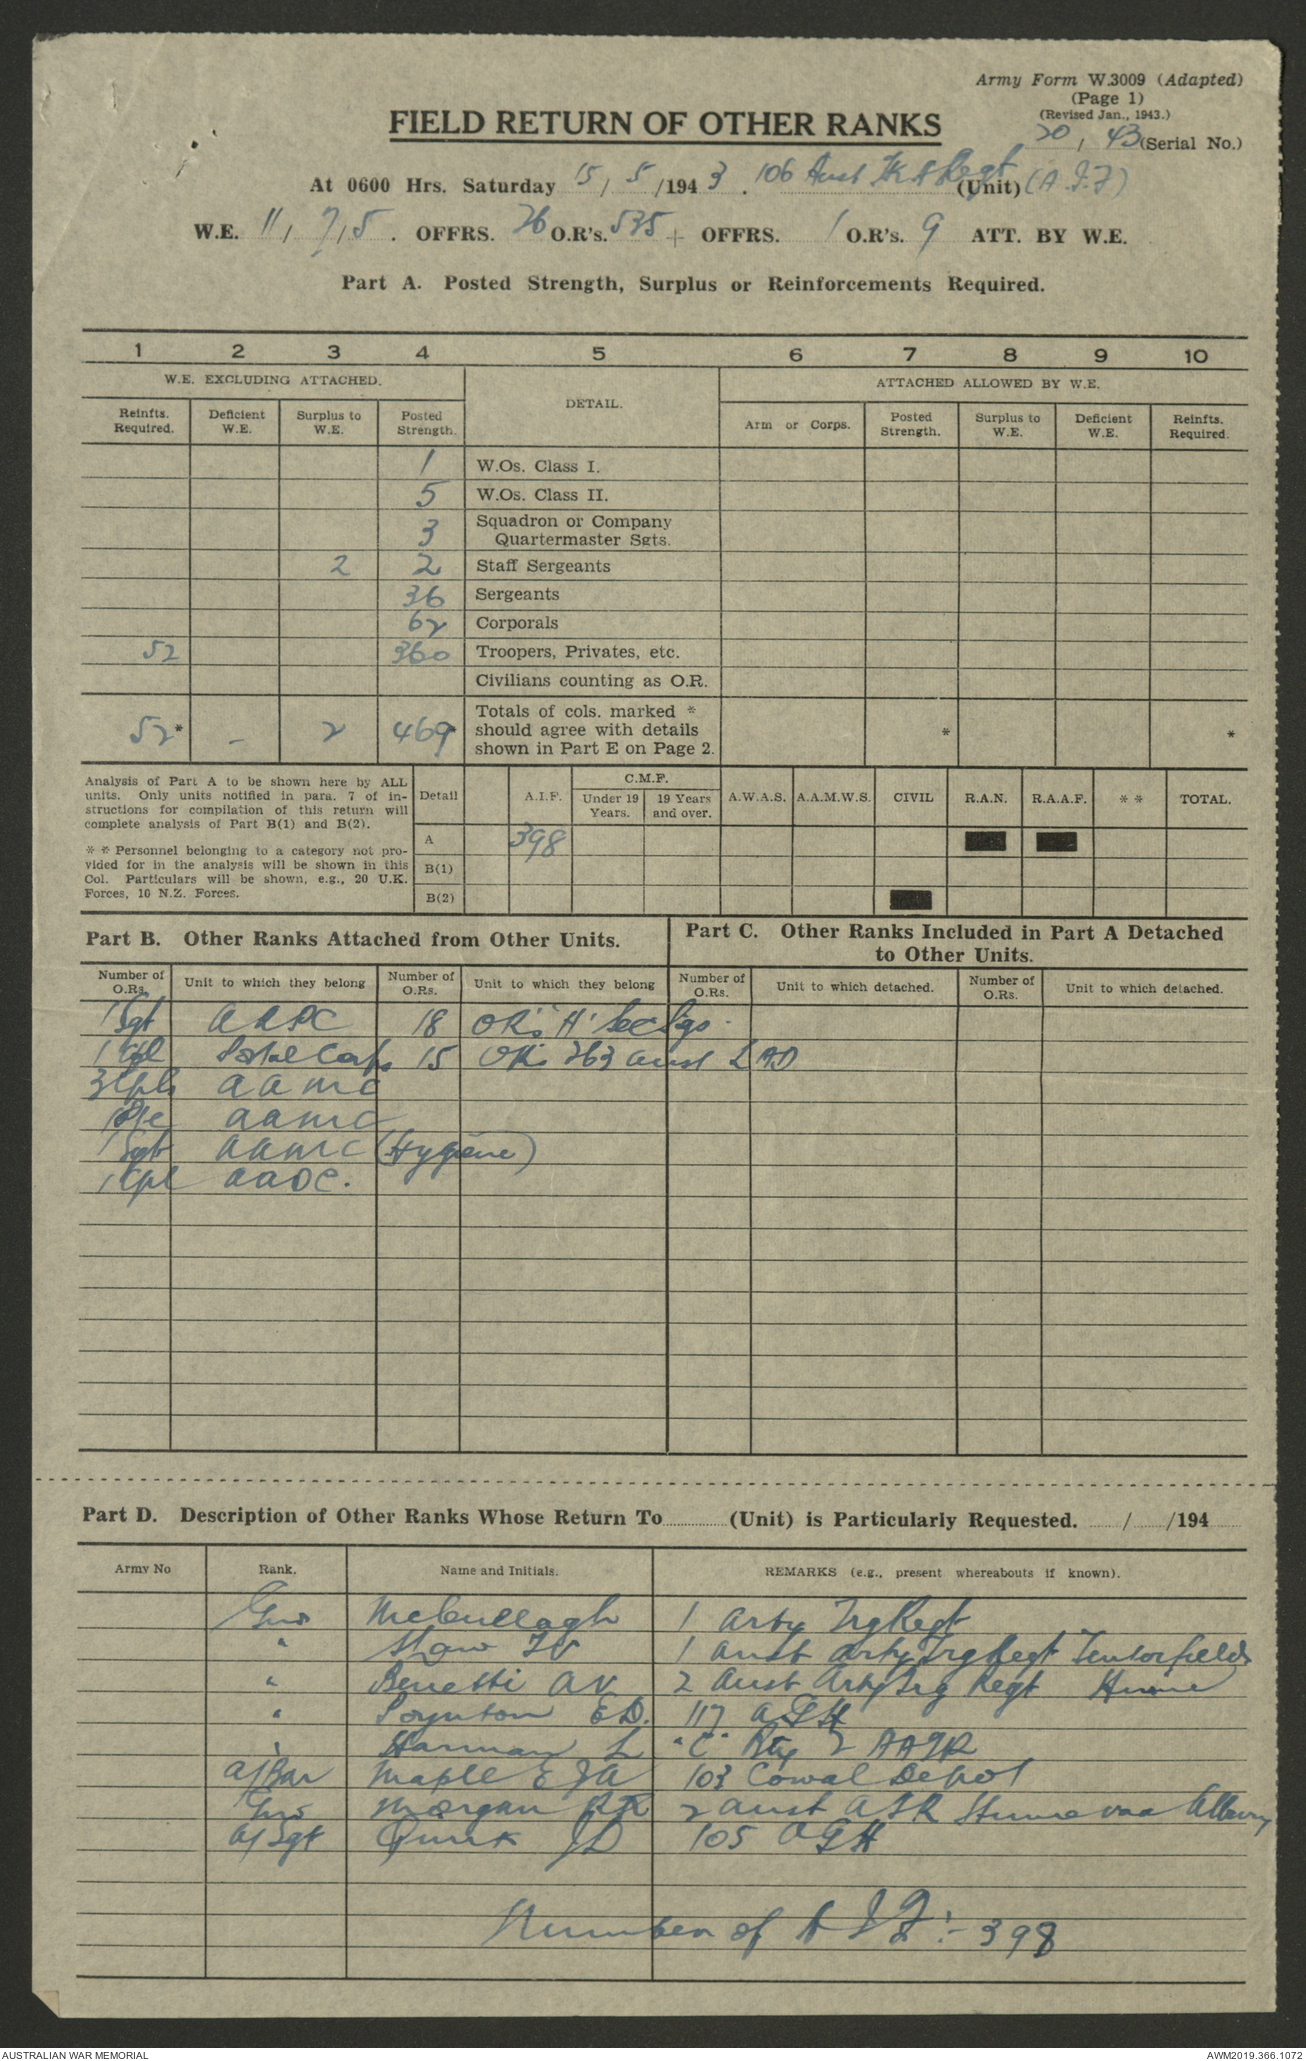 Army Form W.3009 (Adapted)
(Page 1)
(Revised Jan., 1943.)
FIELD RETURN OF OTHER RANKS
20, 43 (Serial No.)
At 0600 Hrs. Saturday 15 / 5 /1943. 106 Aust Tk A Regt (Unit) (A.I.F)
W.E. 11 / 7 / 5. OFFRS. 26 O.R's. 535 + OFFRS. 1 O.R's. 9 ATT. BY W.E.
Part A. Posted Strength, Surplus or Reinforcements Required.
1 2 3 4 5 6 7 8 9 10
W.E. EXCLUDING ATTACHED. DETAIL. ATTACHED ALLOWED BY W.E.
Reinfts. Required. Deficient W.E. Surplus to W.E. Posted Strength. Arm or Corps. Posted Strength. Surplus to W.E. Deficient W.E. Reinfts. Required.
1 W.Os. Class I.
5 W.Os. Class II.
3 Squadron or Company Quartermaster Sgts.
2 2 Staff Sergeants
36 Sergeants
62 Corporals
52 360 Troopers, Privates, etc.
Civilians counting as O.R.
52* - 2 469 Totals of cols. marked * should agree with details shown in Part E on Page 2. * *
Analysis of Part A to be shown here by ALL
units. Only units notified in para. 7 of in-
structions for compilation of this return will
complete analysis of Part B(1) and B(2).
* * Personnel belonging to a category not pro-
vided for in the analysis will be shown in this
Col. Particulars will be shown, e.g., 20 U.K.
Forces, 10 N.Z. Forces.
Detail A.I.F. C.M.F. Under 19 Years. 19 Years and over. A.W.A.S. A.A.M.W.S. CIVIL R.A.N. R.A.A.F. * * TOTAL.
A 398
B(1)
B(2)
Part B. Other Ranks Attached from Other Units.
Part C. Other Ranks Included in Part A Detached to Other Units.
Number of O.Rs. Unit to which they belong Number of O.Rs. Unit to which they belong Number of O.Rs. Unit to which detached. Number of O.Rs. Unit to which detached.
1 Sgt AAPC 18 ORs 'H' Sec Sigs.
1 Cpl Postal Corps 15 ORs 263 Aust LAD
3 Cpls AAMC
1 Pte AAMC
1 Sgt AAMC (Hygiene)
1 Cpl AAOC.
Part D. Description of Other Ranks Whose Return To ...... (Unit) is Particularly Requested. ....../....../194......
Army No Rank. Name and Initials. REMARKS (e.g., present whereabouts if known).
Gnr McCullagh 1 Arty Trg Regt
" 1 Aust Arty Trg Regt Tenterfield
" Benetti AV 2 Aust Arty Trg Regt Hume
" Poynton ED. 117 AGH
" Harman L "C" Bty 2 AATR
A/Bdr Maple EJA 103 Cowal Depot
Gnr Morgan 2 Aust ATR Hume via Albury
A/Sgt Quirk JD 105 AGH
Number of A I F :- 398
AUSTRALIAN WAR MEMORIAL
AWM2019.366.1072